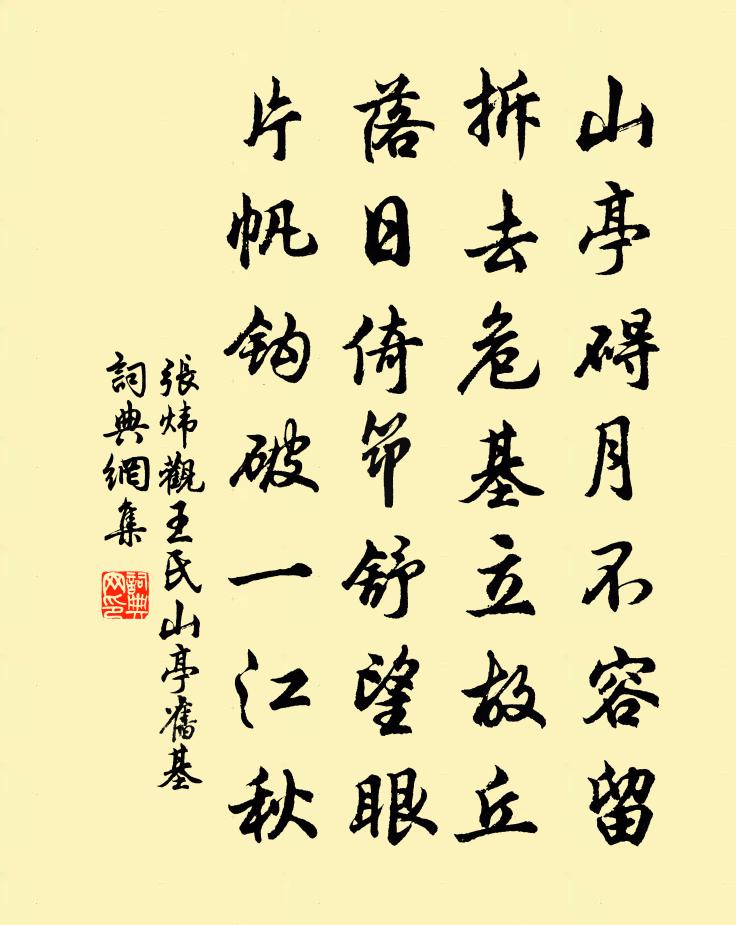 山亭碍月不容留
拆去危基立故丘
落日倚笻舒望眼
片帆鈎破一江秋
張炜觀王氏山亭舊基
詞典網集
詞典网印